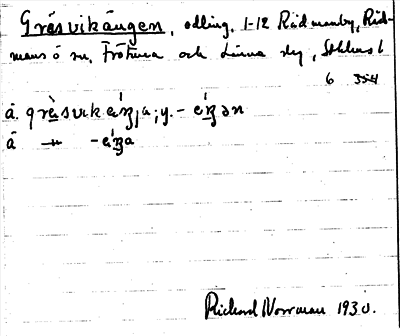 Gräsvikängen, odling. 1-12 Rådmanby, Råd-
mansö sn, Frötuna och Länna skg, Sthlms l
6 354
å. grɛ̀svɩkɛ́ŋ,a; y. - ɛ́ŋən
å -"- -ɛ́ŋa
Rickard Norrman 1930.